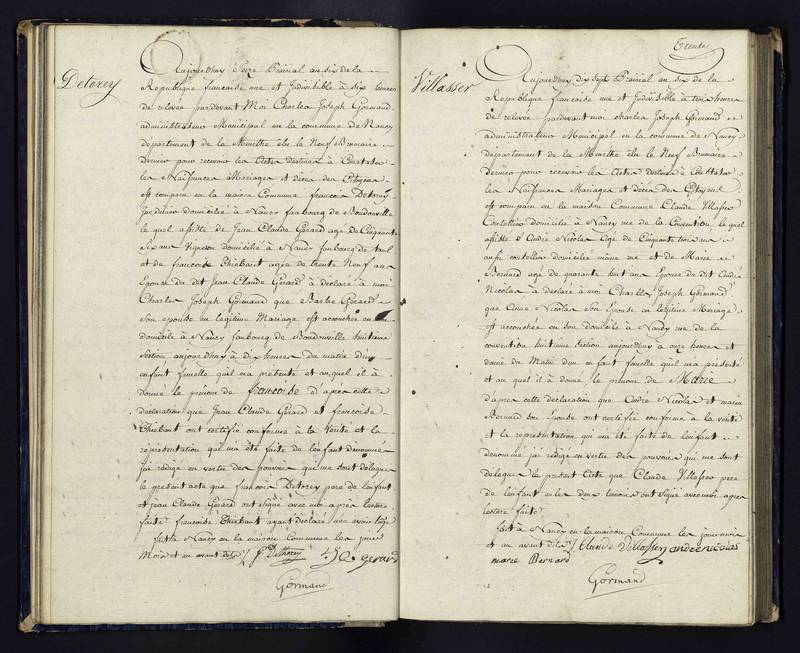 Detorey
Aujourdhuy Seize Prairial an six de la
Republique francaise une et Indivisible à six heures
de relevée pardevant Moi Charles Joseph Gormand
administrateur Municipal en la commune de Nancy
département de la Meurthe élu le Neuf Brumaire
dernier pour recevoir les Actes destinés à Constater
les Naissances Mariages et décès des Citoyens
est comparu en la maison Commune francois Detorey
Jardinier domicilié à Nancy faubourg de Boudonville
le quel assisté de Jean Claude Gerard agé de Cinquante
Six ans Vigneron domicilié à Nancy faubourg de
et de francoise Thiebaut agée de trente Neuf ans
Epouse du dit Jean Claude Gerard à déclaré à moi
Charles Joseph Gormand que Barbe Gerard
Son epouse en legitime Mariage est accouchée en son
domicile à Nancy faubourg de Boudonville huitieme
Section aujourdhuy à dix heures du matin d'un
enfant femelle qu'il m'a présenté et auquel il à
donné le prenom de francoise d'après cette
declaration que Jean Claude Gerard et francoise
Thiebaut ont certifié conforme à la Vérité et la
représentation qui m'a été faite de l'enfant denommé
j'ai rédigé en vertu des pouvoirs qui me sont délegués
le présent acte que francois Detorey pere de l'enfant
et Jean Claude Gerard ont signé avec moi après lecture
faite francoise Thiebaut ayant declaré ne savoir signer
fait à Nancy en la maison Commune les jour
Mois et an avant dits
Gerard
Gormand
Villasser
Aujourdhuy dix Sept Prairial an six de la
Republique francaise une et Indivisible à trois heures
de relevée pardevant moi Charles Joseph Gormand
administrateur Municipal en la commune de Nancy
département de la Meurthe élu le Neuf Brumaire
Dernier pour recevoir les Actes destinés à Constater
les Naissances Mariages et décès des Citoyens
est comparu en la maison Commune Claude
domicilié à Nancy rue de la Convention le quel
assisté de André Nicolas agé de Cinquante trois ans
aussi domicilié même rue et de Marie
Bernard agé de quarante huit ans Epouse du dit André
Nicolas à declaré à moi Charles Joseph Gormand
que Anne Nicolas Son Epouse en legitime Mariage
est accouchée en son domicile à Nancy rue de la
convention huitieme Section aujourdhuy à onze heures et
demie du Matin d'un enfant femelle qu'il m'a présenté
et au quel il à donné le prenom de Marie
d'apres cette declaration que André Nicolas et marie
Bernard son Epouse ont certifié conforme à la vérité
et la représentation qui m'a été faite de l'enfant
denommé j'ai rédigé en vertu des pouvoirs qui me sont
délegués le present Acte que Claude pere
de l'enfant et les deux temoins ont signé avec moi après
lecture faite
fait à Nancy en la maison Commune les jour mois
et an avant dits Claude andré nicolas
marie Bernard
Gormand